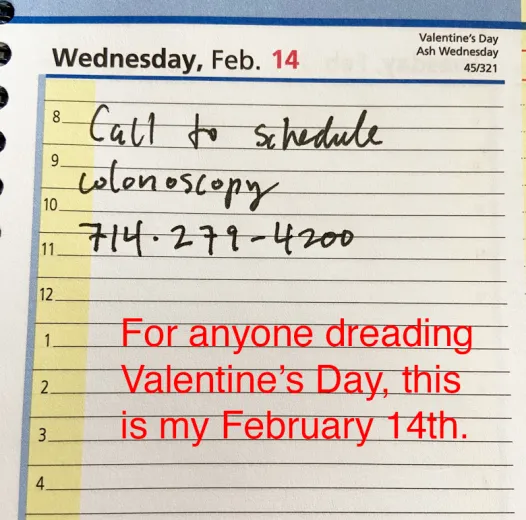 Valentine's Day
Ash Wednesday
Wednesday, Feb. 14
45/321
8 Call to schedule
9 colonoscopy
10
714.279-4200
11
12
For anyone dreading
1
Valentine’s Day, this
2
is my February 14th.
3
4